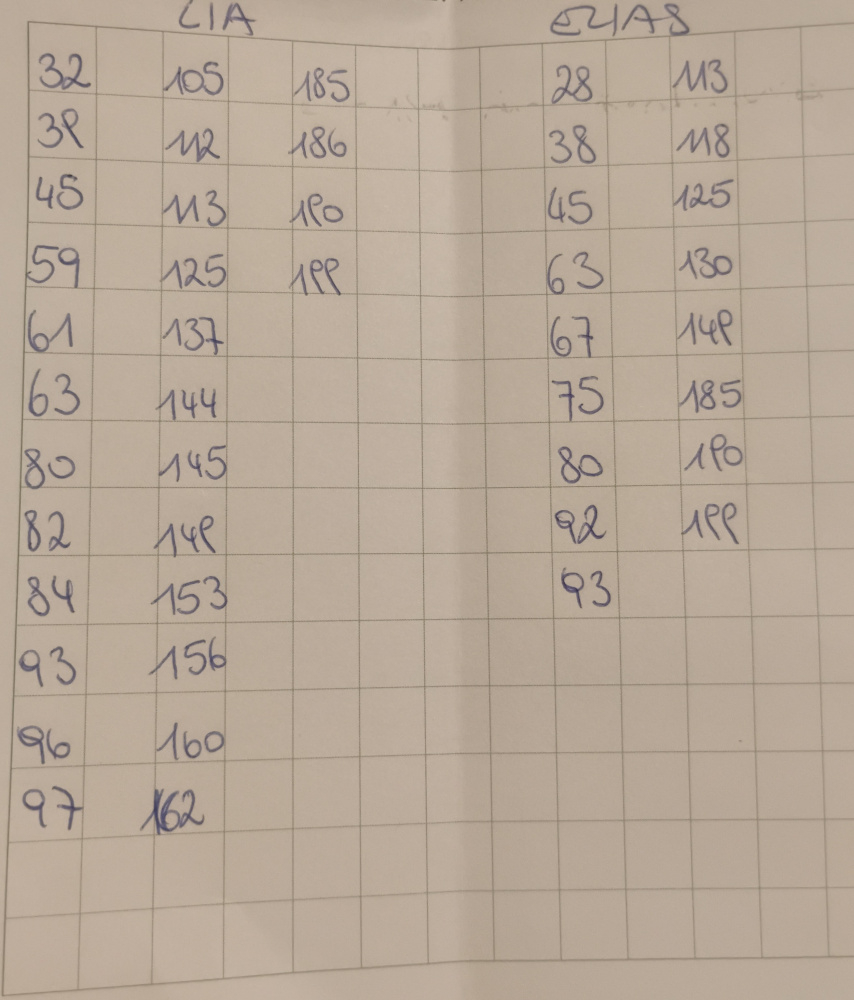 LIA ELIAS
32 105 185 28 113
39 112 186 38 118
45 113 190 45 125
59 125 199 63 130
61 137 67 149
63 144 75 185
80 145 80 190
82 149 92 199
84 153 93
93 156
96 160
97 162